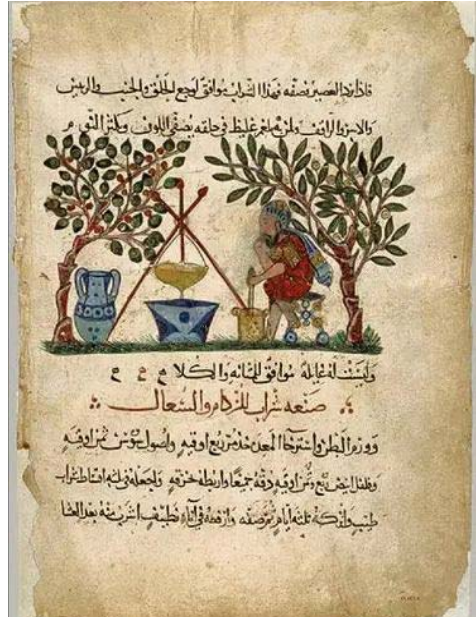 فاذا برد العصير نصفه فهذا الشراب موافق لوجع الحلق والجنب والريتين
والاسترخا ولمن به بلغم غليظ في حلقه يصفي اللون ويكثر النوم
وليست له غايلة موافق للمثانه والكلا
صنعه شراب للزكام والسعال
وورم البطن واسترخا المعدة خذ مر ربع اوقيه واصول سوسن ثمن اوقيه
وفلفل ابيض ربع وثمن اوقيه دقه جميعا واربطه خرقه واجعله في ثلثه اقساط شراب
طيب واتركه ثلثه ايام ثم صفه وارفعه في اناء نظيف اشرب منه بعد العشا